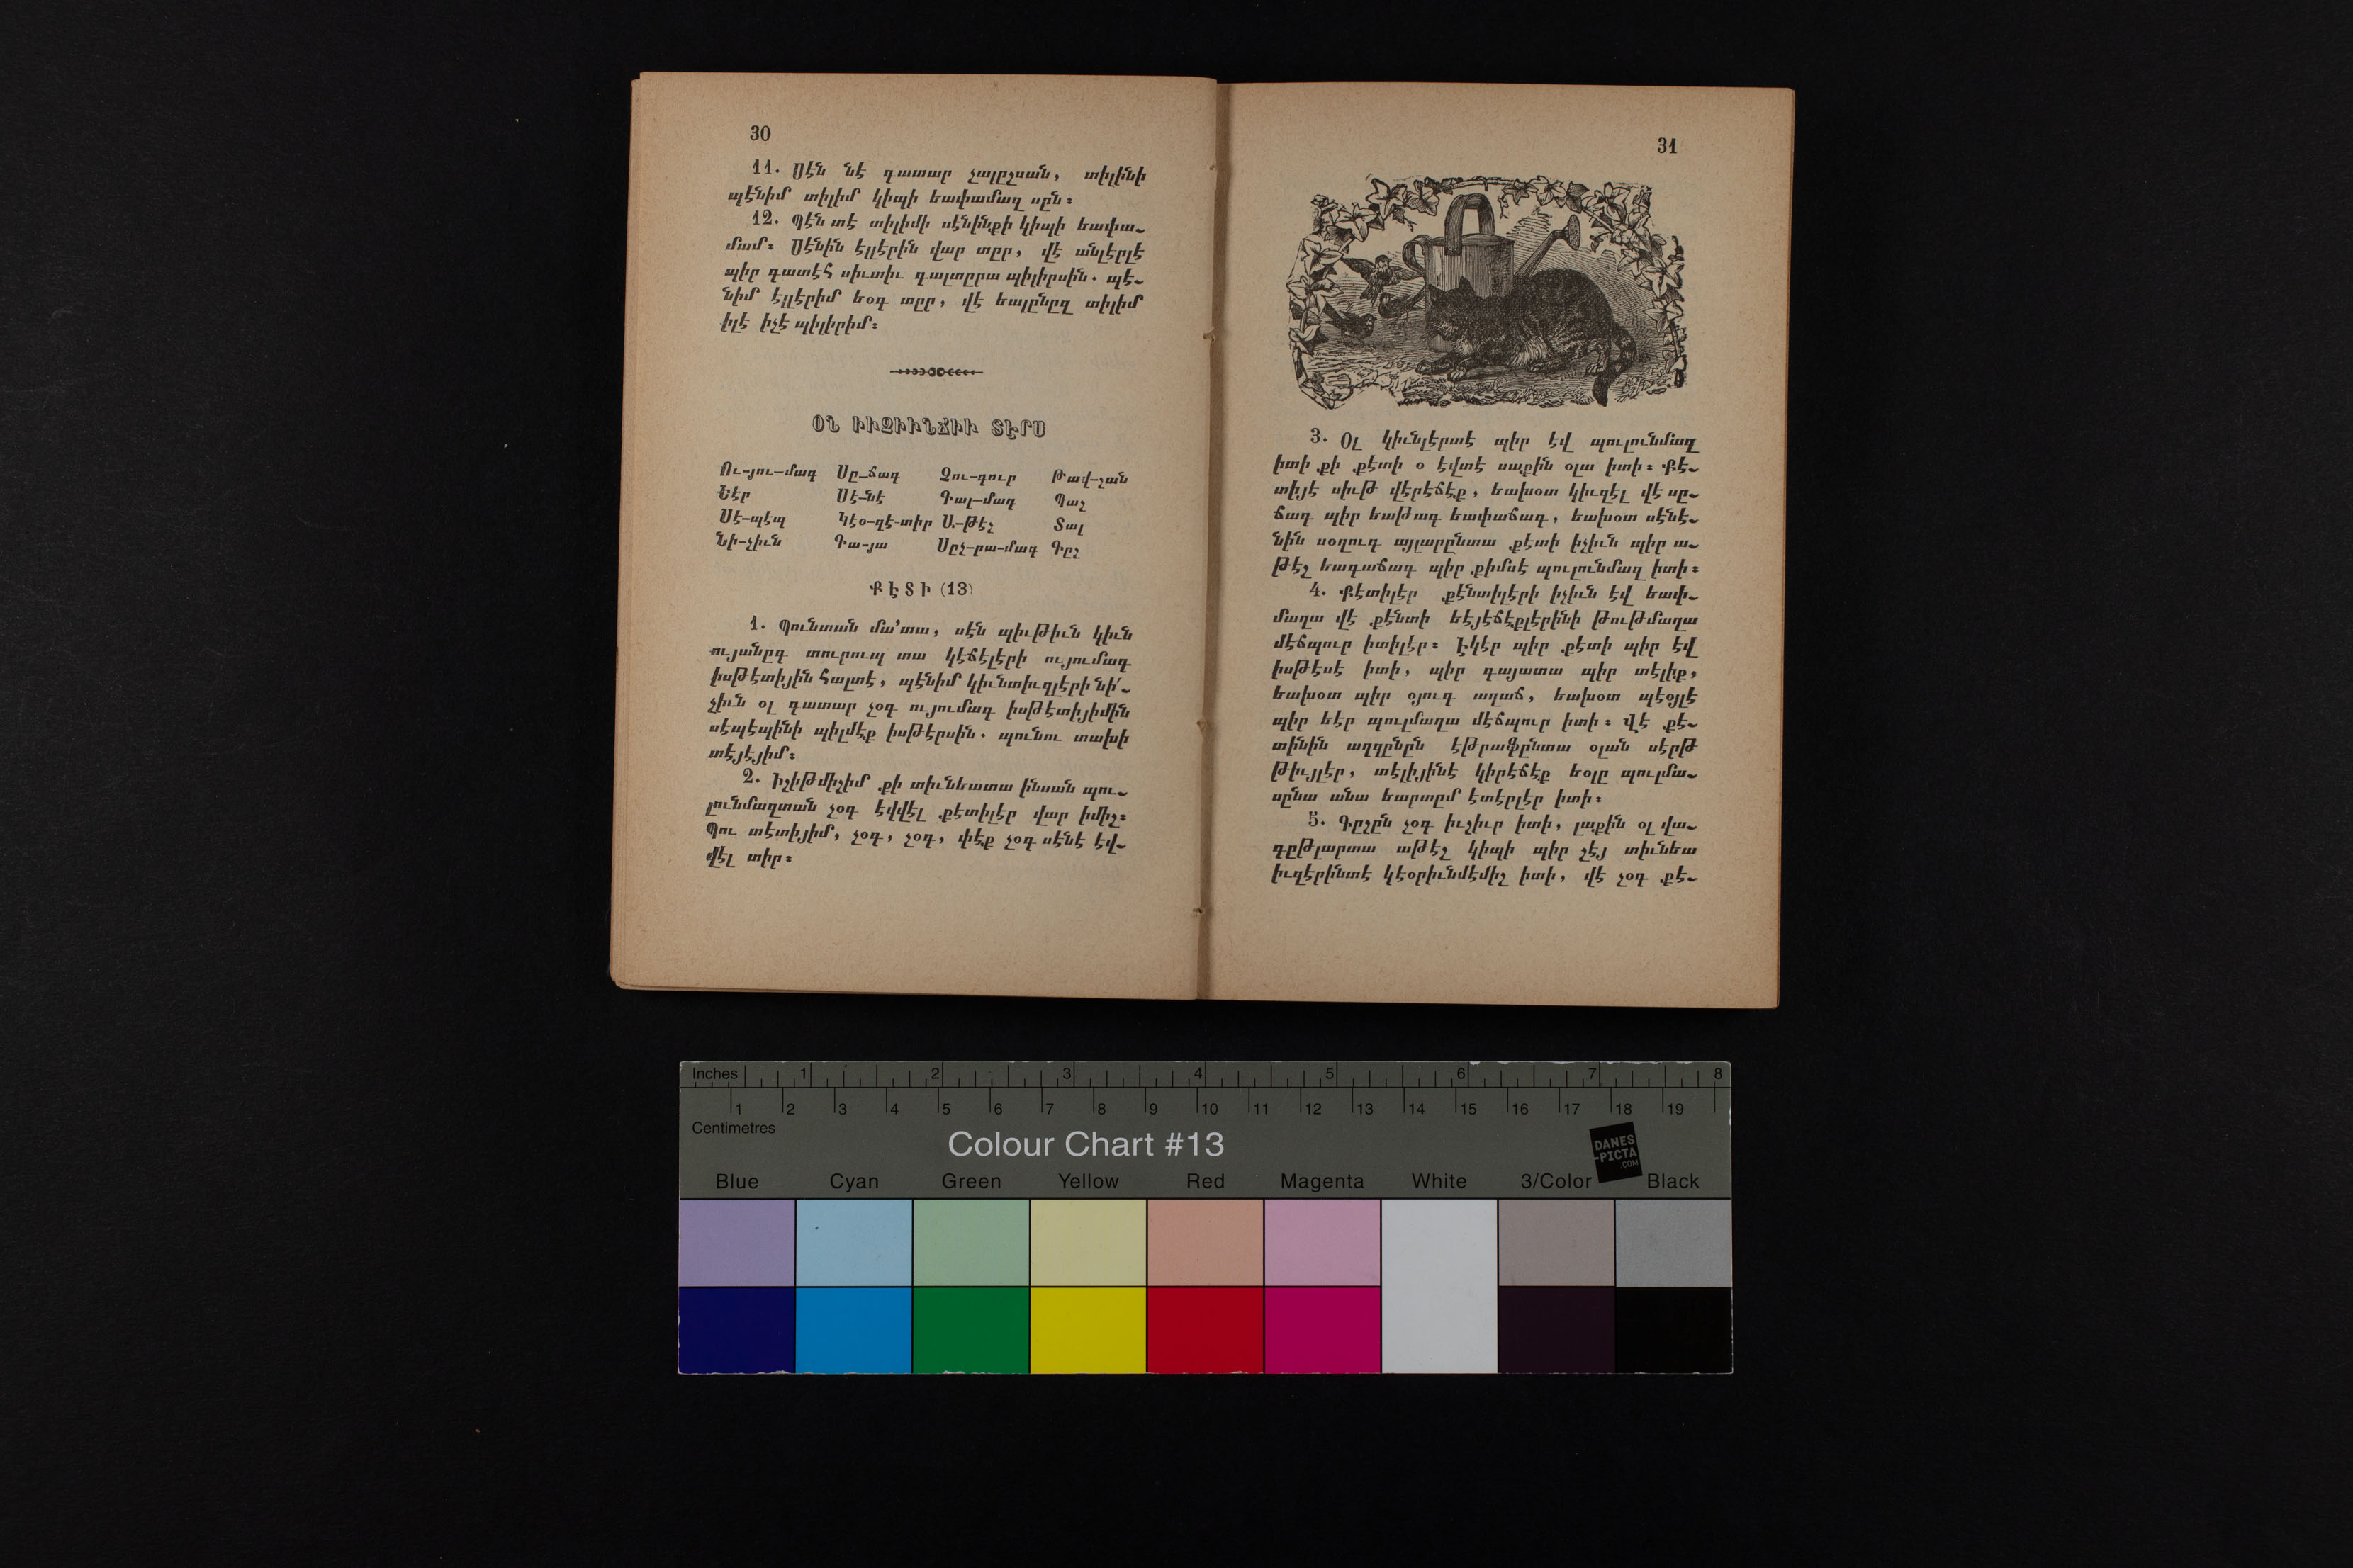 30
11. Սէն նէ գատար չալըշսան, տիլինի
պէնիմ տիլիմ կիպի եափամազ սըն։
12. Պէն տէ տիլիմի սէնինքի կիպի եափա-
մամ։ Սէնին էլլէրին վար տըր, վէ անլէրլէ
պիր գատէհ սիւտիւ գալտըրա պիլիրսին. պէ-
նիմ էլլէրիմ եօգ տըր, վէ եալընըզ տիլիմ
իլէ իչէ պիլիրիմ։
ՕՆ ԻՒՉԻՒՆՃԻՒ ՏԷՐՍ
Ու-յու-մագ Սը-ճագ Չու-գուր Թավ-շան
Եէր Սէ-նէ Գալ-մագ Պաշ
Սէ-պէպ Կէօ-զէ-տիր Ա-թէշ Տալ
Նի-չիւն Գա-յա Սըչ-րա-մագ Գըշ
ՔԷՏԻ (13)
1. Պունտան մա՛տա, սէն պիւթիւն կիւն
ույանըգ տուրուպ տա կէճէլէրի ույումագ
իսթէտիյին հալտէ, պէնիմ կիւնտիւզլէրի նի՛-
չիւն օլ գատար չօգ ույումագ իսթէտիյիմին
սէպէպինի պիլմէք իսթէրսին. պունու տախի
տէյէյիմ։
2. Իշիթմիշիմ քի տիւնեատա ինսան պու-
լունմազտան չօգ էվվէլ քէտիլէր վար իմիշ։
Պու տէտիյիմ, չօգ, չօգ, փէք չօգ սէնէ էվ-
վէլ տիր։
31
3. Օլ կիւնլէրտէ պիր էվ պուլունմազ
իտի քի քէտի օ էվտէ սաքին օլա իտի։ Քէ-
տիյէ սիւթ վէրէճէք, եախօտ կիւզէլ վէ սը-
ճագ պիր եաթագ եափաճագ, եախօտ սէնէ-
նին սօղուգ այլարընտա քէտի իչիւն պիր ա-
թէշ եագաճագ պիր քիմսէ պուլունմազ իտի։
4. Քէտիլէր քէնտիլէրի իչիւն էվ եափ-
մաղա վէ քէնտի եէյէճէքլէրինի թութմաղա
մէճպուր իտիլէր։ Էկէր պիր քէտի պիր էվ
իսթէսէ իտի, պիր գայատա պիր տէլիք,
եախօտ պիր օյուգ աղաճ, եախօտ պէօյլէ
պիր եէր պուլմաղա մէճպուր իտի։ Վէ քէ-
տինին աղզընըն էթրաֆընտա օլան սէրթ
թիւյլէր, տէլիյինէ կիրէճէք եօլը պուլմա-
սընա անա եարտըմ էտէրլէր իտի։
5. Գըշըն չօգ իւշիւր իտի, լաքին օլ վա-
գըթլարտա աթէշ կիպի պիր շէյ տիւնեա
իւզէրինտէ կէօրիւնմէմիշ իտի, վէ չօգ քէ-
Inches 1 2 3 4 5 6 7 8
1 2 3 4 5 6 7 8 9 10 11 12 13 14 15 16 17 18 19
Centimetres
Colour Chart #13
DANES
-PICTA
.COM
Blue Cyan Green Yellow Red Magenta White 3/Color Black